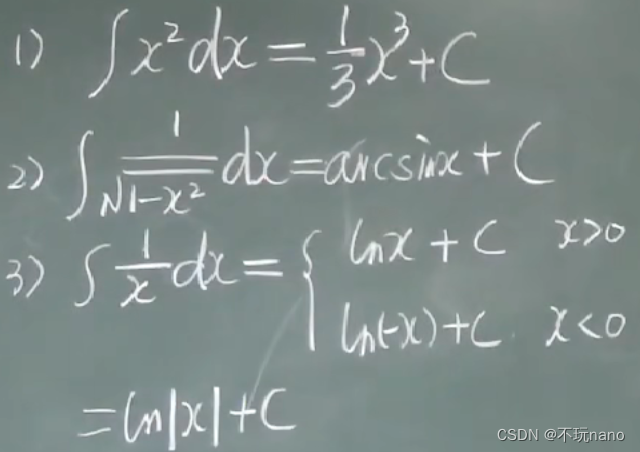 1) ∫x²dx = 1/3 x³ + C
2) ∫ 1/√(1-x²) dx = arcsinx + C
3) ∫ 1/x dx = { lnx + C x>0
ln(-x) + C x<0
= ln|x| + C
CSDN @不玩nano